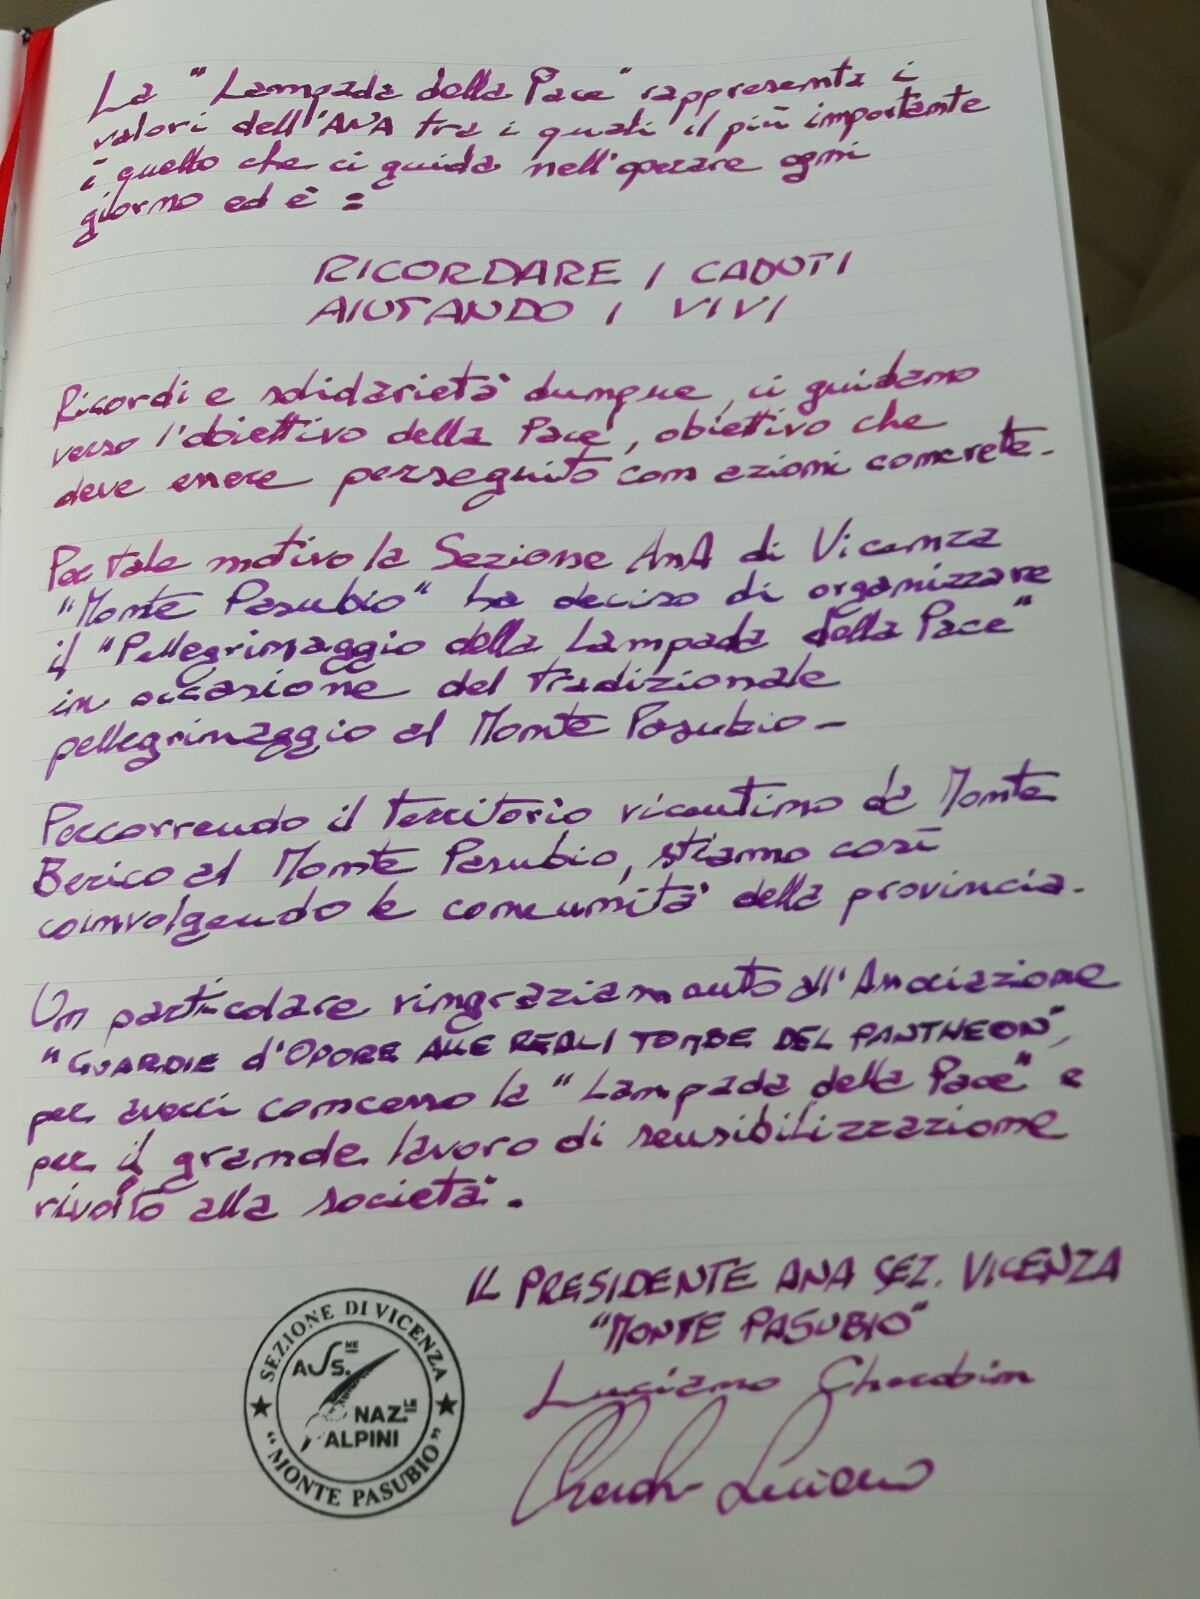 La "Lampada della Pace" rappresenta i
valori dell'ANA tra i quali il più importante
è quello che ci guida nell'operare ogni
giorno ed è =
RICORDARE I CADUTI
AIUTANDO I VIVI
Ricordi e solidarietà dunque, ci guidano
verso l'obiettivo della Pace, obiettivo che
deve essere perseguito con azioni concrete.
Per tale motivo la Sezione ANA di Vicenza
"Monte Pasubio" ha deciso di organizzare
il "Pellegrinaggio della Lampada della Pace"
in occasione del tradizionale
pellegrinaggio al Monte Pasubio -
Percorrendo il territorio vicentino da Monte
Berico al Monte Pasubio, stiamo così
coinvolgendo le comunità della provincia.
Un particolare ringraziamento all'Associazione
"GUARDIE d'ONORE ALLE REALI TOMBE DEL PANTHEON",
per averci concesso la "Lampada della Pace" e
per il grande lavoro di sensibilizzazione
rivolto alla società.
IL PRESIDENTE ANA SEZ. VICENZA
"MONTE PASUBIO"
Luciano Cherobin
Cherobin Luciano
SEZIONE DI VICENZA
ASS.NE
NAZ.LE
ALPINI
"MONTE PASUBIO"